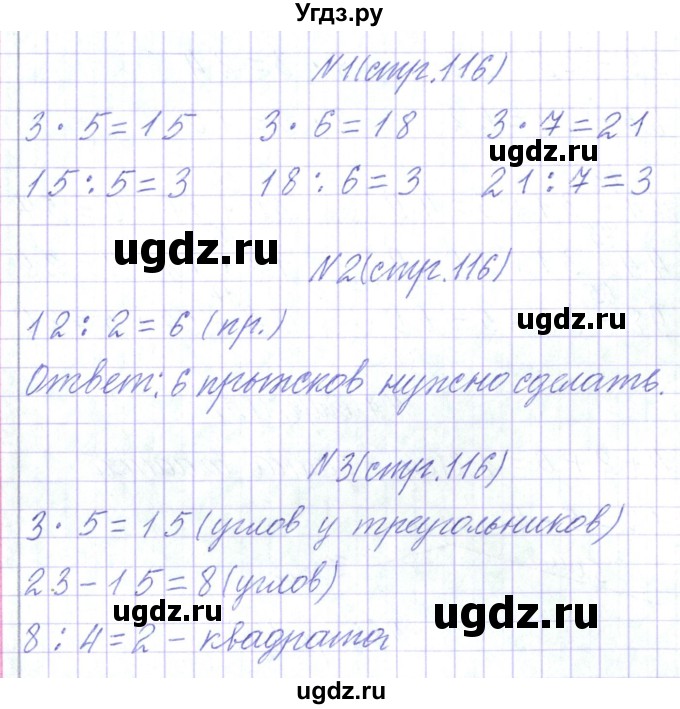 Угдз.ру
N1(стр.116)
3 · 5 = 15 3 · 6 = 18 3 · 7 = 21
ugdz.ru
15 : 5 = 3 18 : 6 = 3 21 : 7 = 3
ugdz.ru
N2(стр.116)
12 : 2 = 6 (пр.)
ugdz.ru
Ответ: 6 прыжков нужно сделать.
N3(стр.116)
3 · 5 = 15 (углов у треугольников)
23 - 15 = 8 (углов)
ugdz.ru ugdz.ru
8 : 4 = 2 - квадрата
ugdz.ru